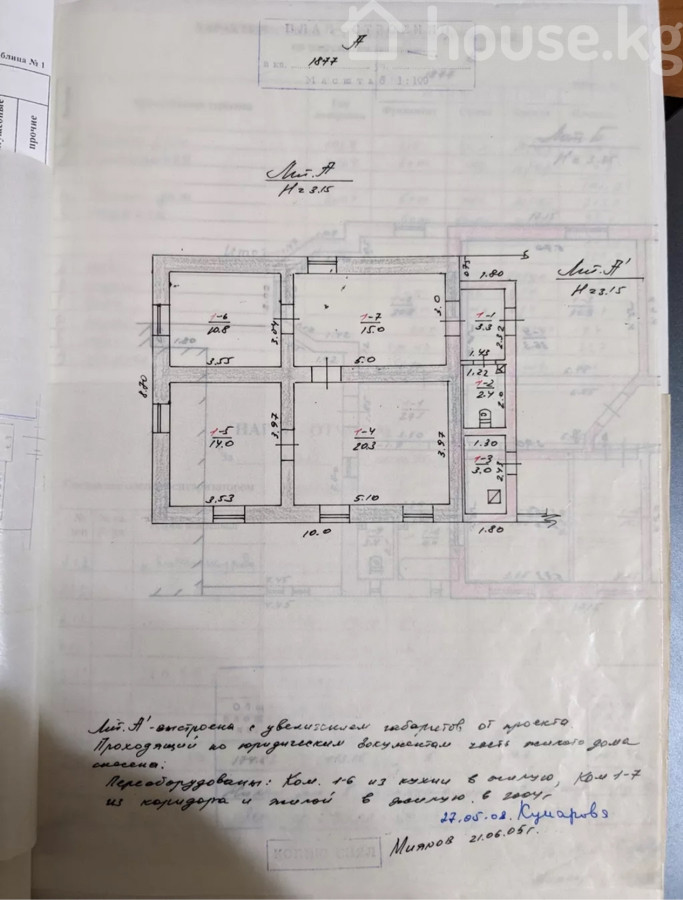 house.kg
блица № 1
прочие
А
1877
Масштаб 1:100
Лит. А
H=3.15
Лит. А'
H=3.15
0.75
1.80
1-6
10.8
3.04
3.55
1-7
15.0
3.0
5.0
1-1
3.3
2.32
1.43
1.22
1-2
2.4
2.0
8.70
1-5
14.0
3.97
3.53
1-4
20.3
3.97
5.10
1.30
1-3
3.0
10.0
1.80
Лит. А'-выстроена с увеличением габаритов от проекта.
Проходящий по юридическим документам часть жилого дома
снесена.
Переоборудованы: Ком. 1-6 из кухни в жилую, Ком 1-7
из коридора и жилой в жилую в 2004г
27.05.08. Кумарова
21.06.05г.